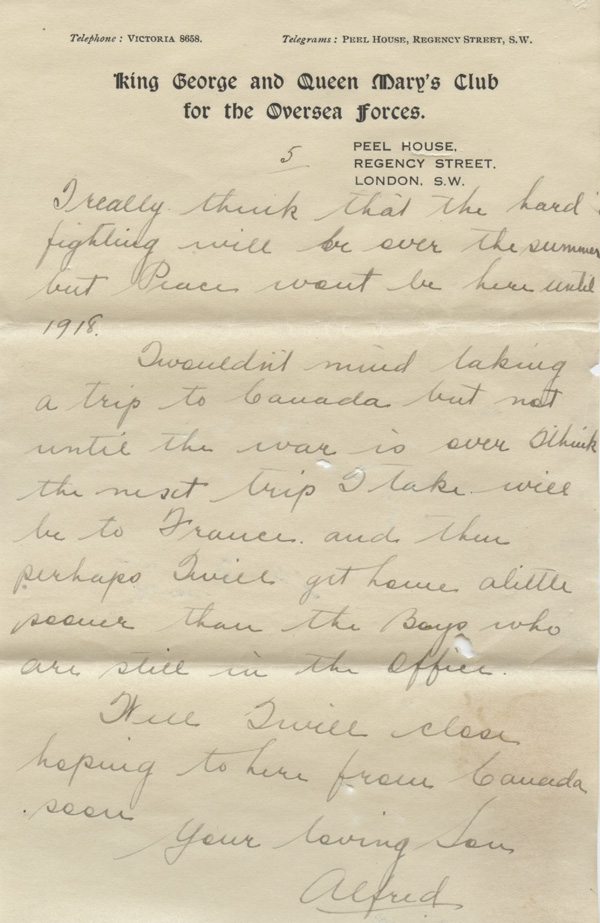 Telephone: VICTORIA 8658. Telegrams: PEEL HOUSE, REGENCY STREET, S.W.
King George and Queen Mary's Club
for the Oversea Forces.
5 PEEL HOUSE,
REGENCY STREET,
LONDON, S.W.
I really think that the hard
fighting will be over the summer
but Peace wont be here until
1918.
I wouldn't mind taking
a trip to Canada but not
until the war is over I think
the next trip I take will
be to France. and then
perhaps I will get home a little
sooner than the Boys who
are still in the Office.
Well I will close
hoping to here from Canada
soon
Your loving Son
Alfred